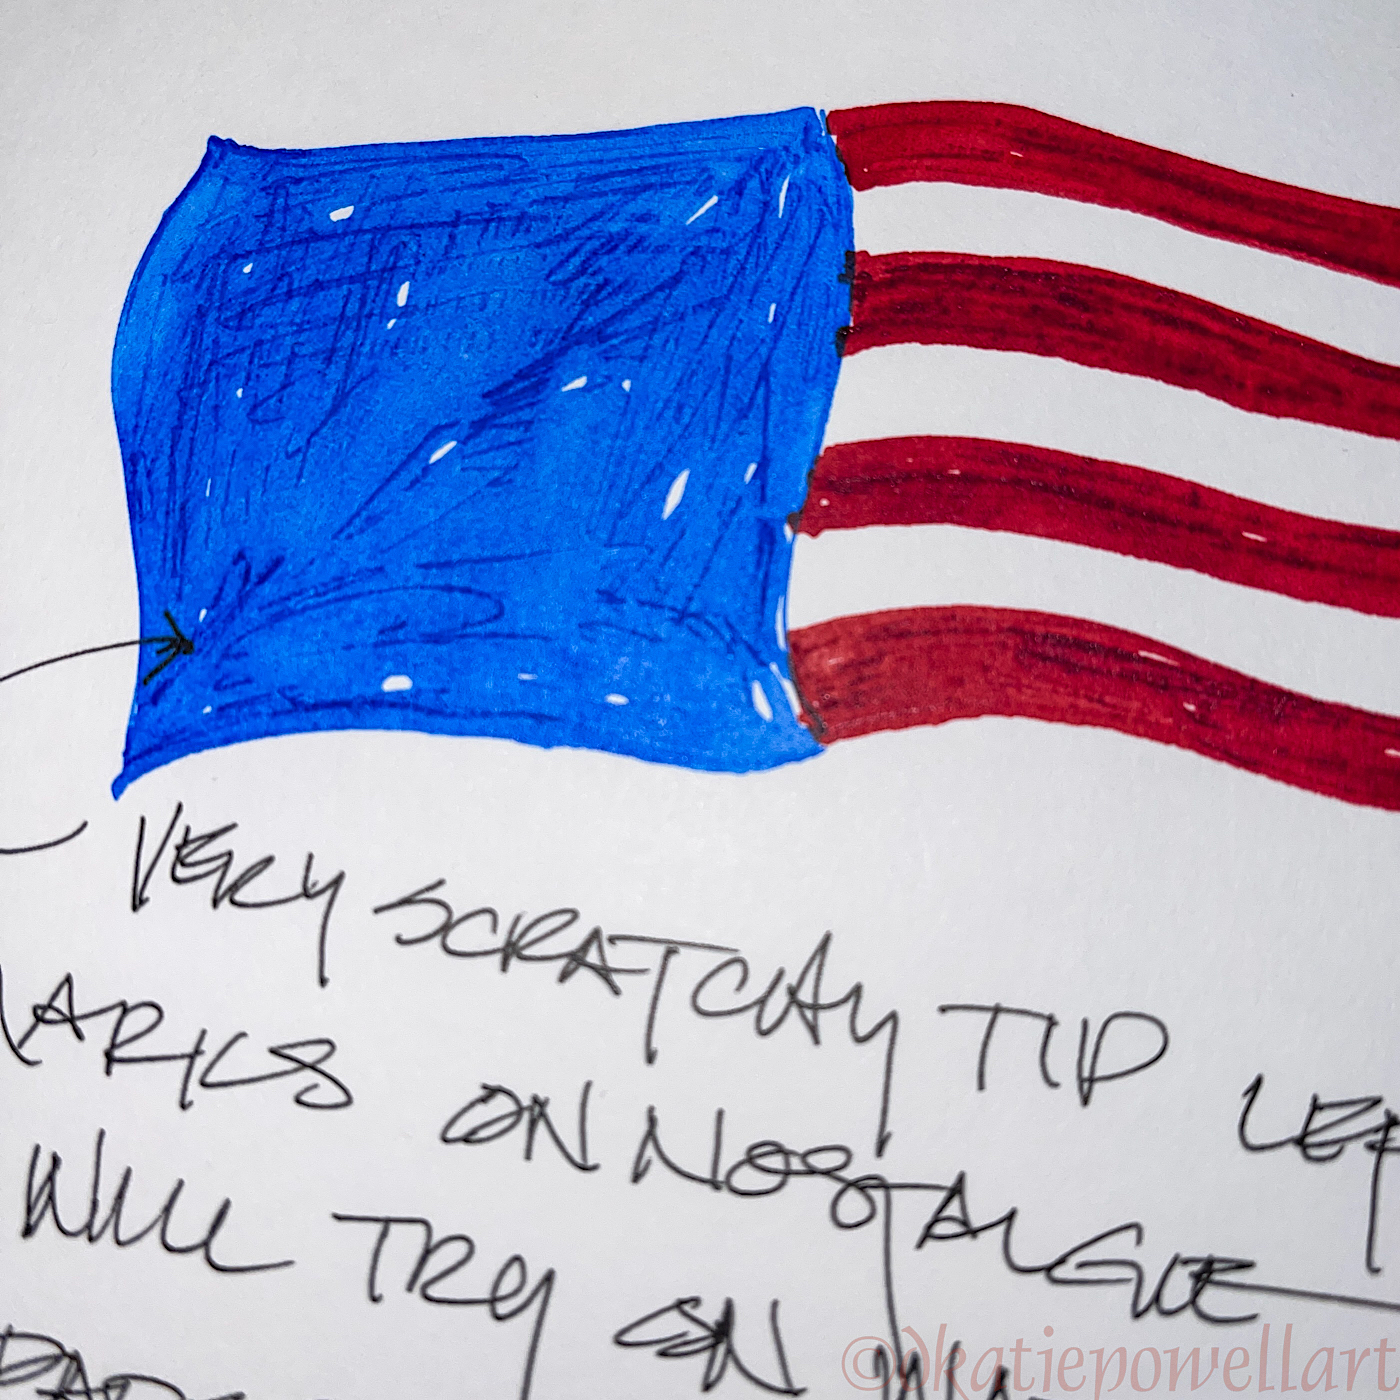 VERY SCRATCHY TIP LEF
ARKS ON NOSTALGIE
WILL TRY ON
©@katiepowellart